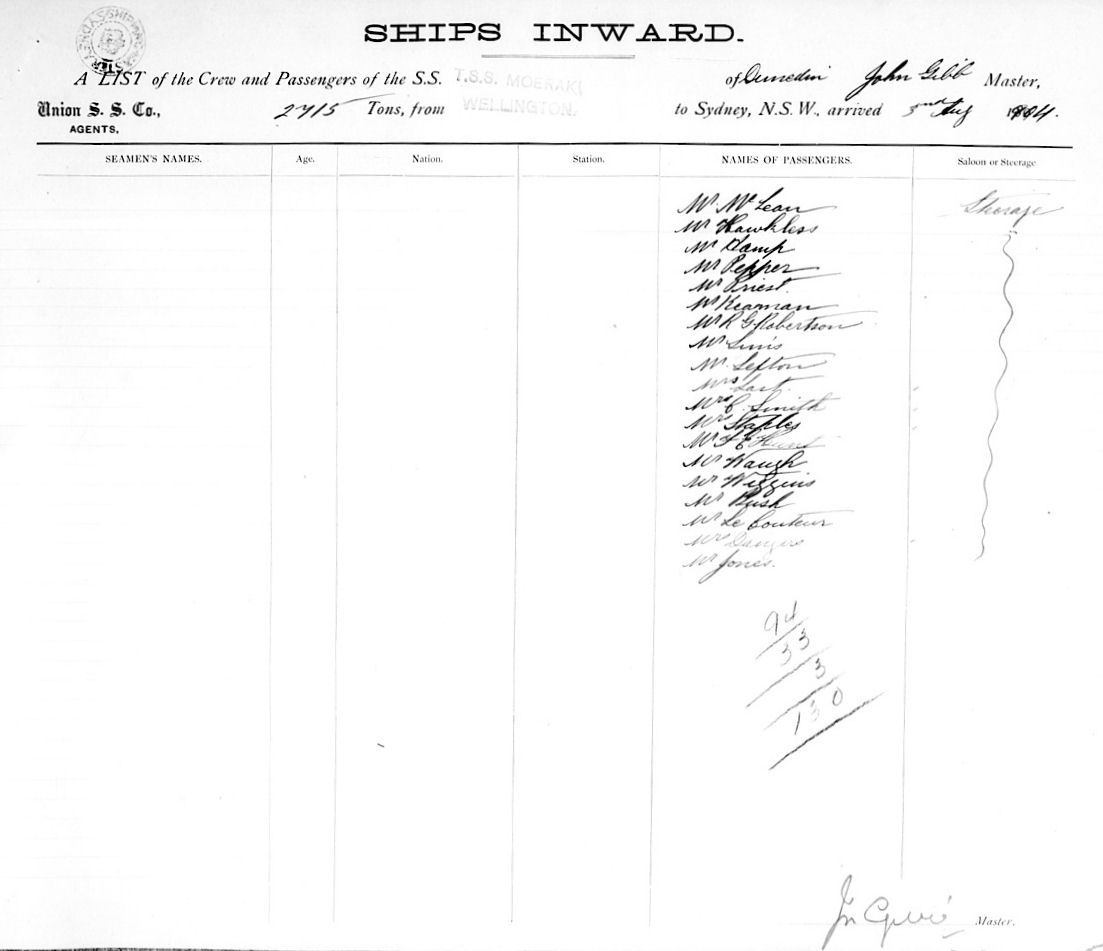 SHIPS INWARD.
A LIST of the Crew and Passengers of the S.S. T.S.S. MOERAKI of Dunedin John Gibb Master,
Union S. S. Co., 2715 Tons, from WELLINGTON. to Sydney, N.S.W., arrived 3rd Aug 1904.
AGENTS,
SEAMEN'S NAMES. Age. Nation. Station. NAMES OF PASSENGERS. Saloon or Steerage
Mr McLean Steerage
Mr Hawkless
Mr Hamp
Mr Pepper
Mr Priest
Mr Kearnan
Mr R G Robertson
Mr Sims
Mr Sefton
Mrs Last
Mrs C. Smith
Mrs Staples
Mr F C Hunt
Mr Waugh
Mr Wiggins
Mr Bush
Mr Le Couteur
Mrs Dangers
Mr Jones.
94
33
3
130
Master.